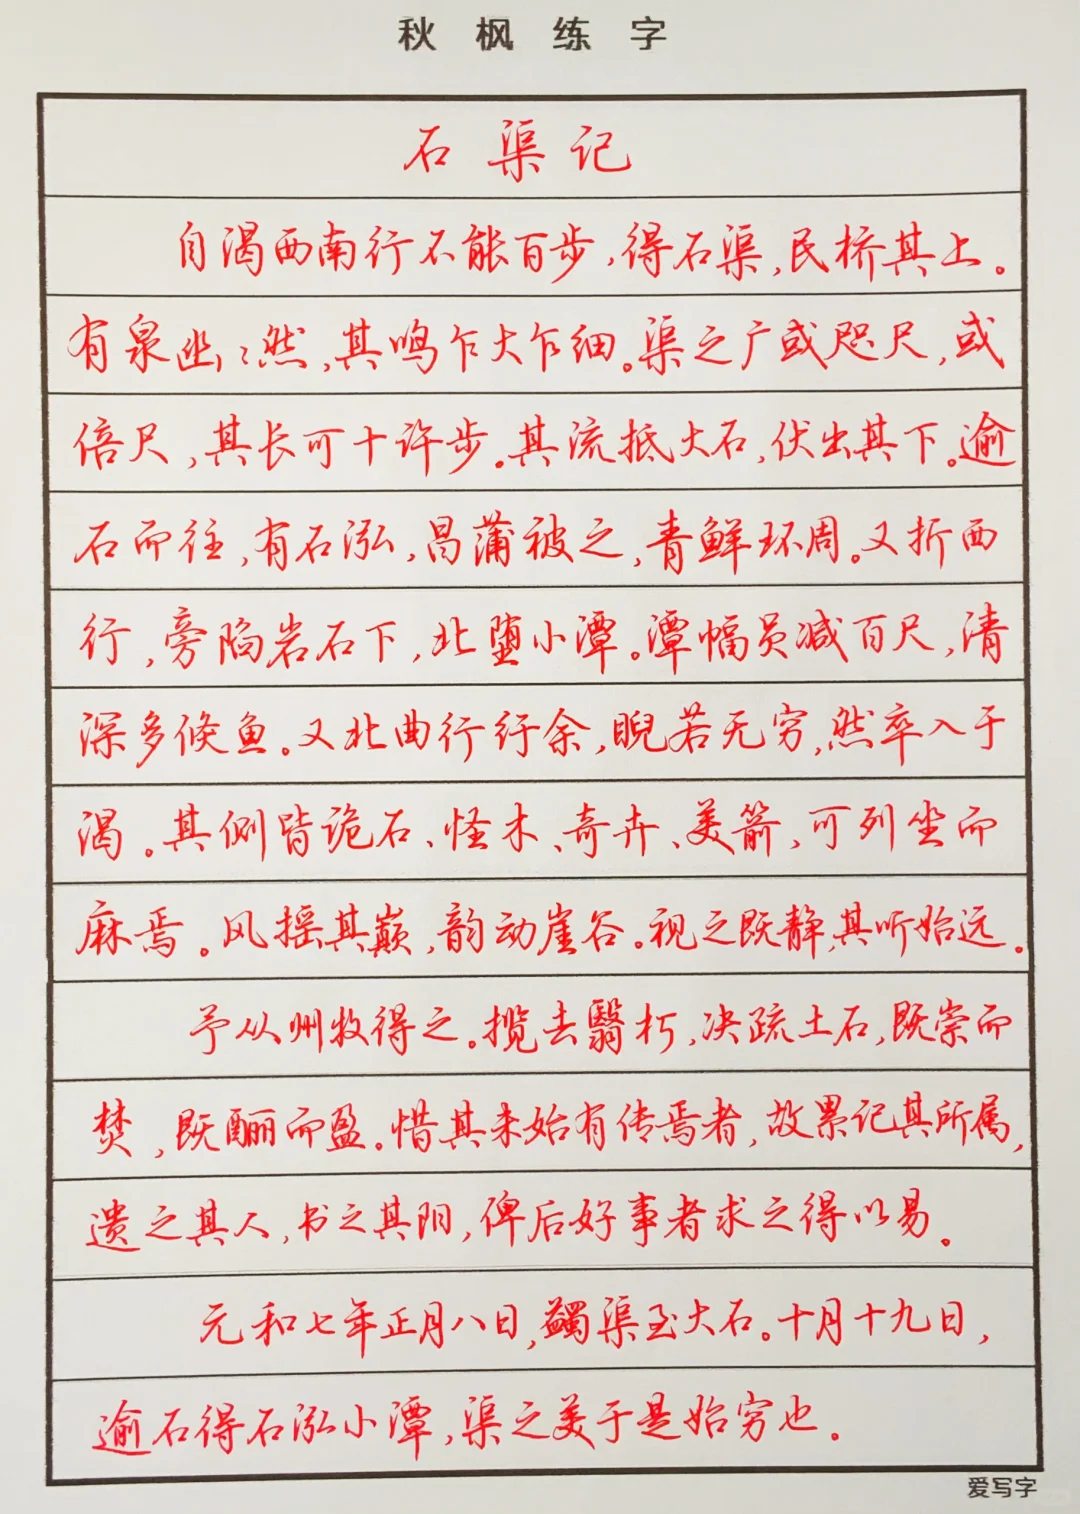 秋枫练字
石渠记
自渴西南行不能百步,得石渠,民桥其上。
有泉幽幽然,其鸣乍大乍细。渠之广或咫尺,或
倍尺,其长可十许步。其流抵大石,伏出其下。逾
石而往,有石泓,昌蒲被之,青鲜环周。又折西
行,旁陷岩石下,北堕小潭。潭幅员减百尺,清
深多倏鱼。又北曲行纡余,睨若无穷,然卒入于
渴。其侧皆诡石、怪木、奇卉、美箭,可列坐而
庥焉。风摇其巅,韵动崖谷。视之既静,其听始远。
予从州牧得之。揽去翳朽,决疏土石,既崇而
焚,既酾而盈。惜其未始有传焉者,故累记其所属,
遗之其人,书之其阳,俾后好事者求之得以易。
元和七年正月八日,蠲渠至大石。十月十九日,
逾石得石泓小潭,渠之美于是始穷也。
爱写字